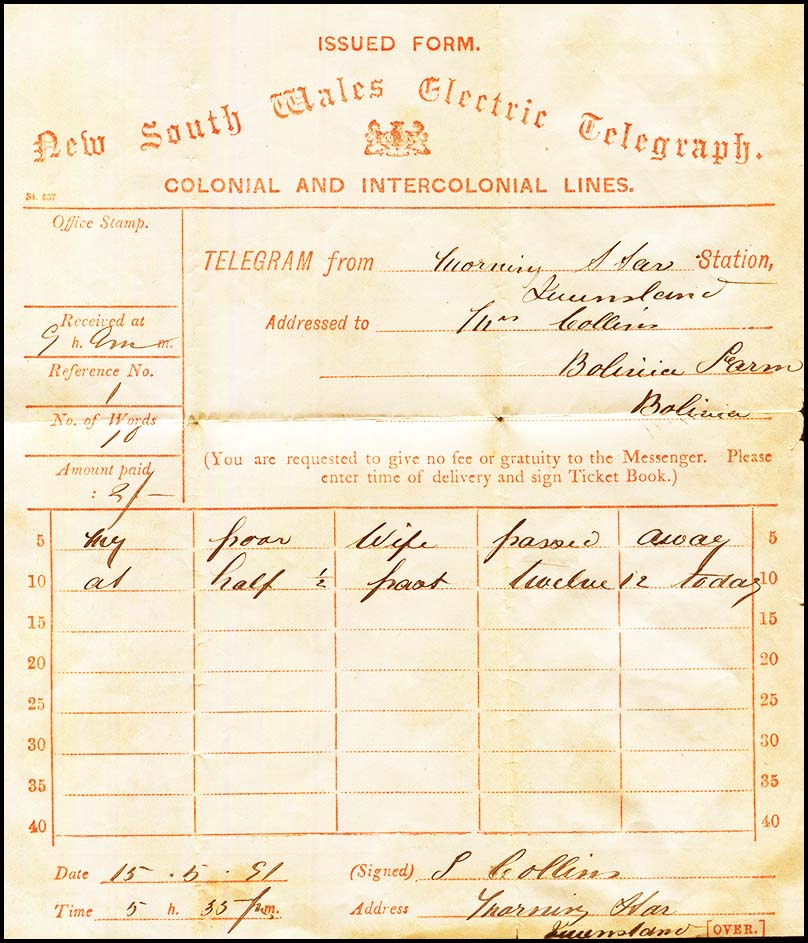 ISSUED FORM.
New South Wales Electric Telegraph.
COLONIAL AND INTERCOLONIAL LINES.
St. 637
Office Stamp.
TELEGRAM from Morning Star Station,
Queensland
Addressed to Mrs Collins
Received at
9 h. am m.
Bolivia Farm
Reference No.
1
Bolivia
No. of Words
10
(You are requested to give no fee or gratuity to the Messenger. Please
enter time of delivery and sign Ticket Book.)
Amount paid
: 2/-
5 My poor Wife passed away 5
10 at half ½ past twelve 12 today 10
15 15
20 20
25 25
30 30
35 35
40 40
Date 15 . 5 . 91 (Signed) S Collins
Time 5 h. 35 p.m. Address Morning Star
Queensland [OVER.]